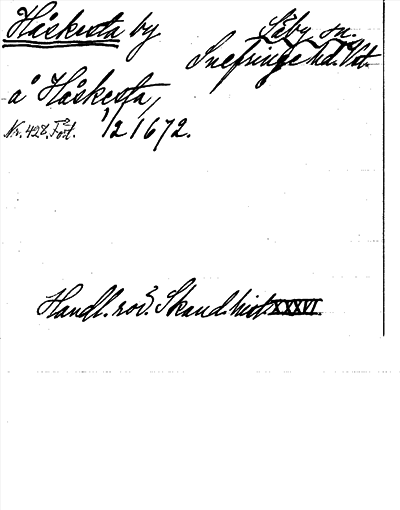 Håskesta by
Säby sn.
Snefringe hd. Vst.
å Håskesta,
Nr. 428. Fol. 2
1/2 1672.
Handl. rör. Skand. hist. XXXVI.